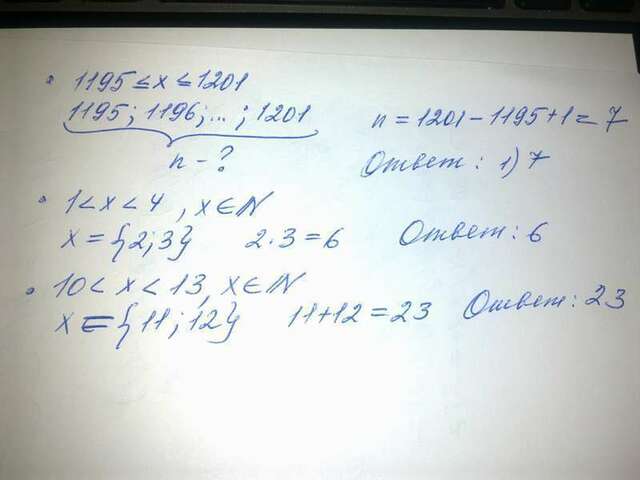 • 1195 ≤ x ≤ 1201
1195; 1196; ...; 1201
n - ?
n = 1201 - 1195 + 1 = 7
Ответ: 1) 7
• 1 < x < 4, x ∈ N
x = {2; 3} 2 · 3 = 6 Ответ: 6
• 10 < x < 13, x ∈ N
x = {11; 12} 11 + 12 = 23 Ответ: 23